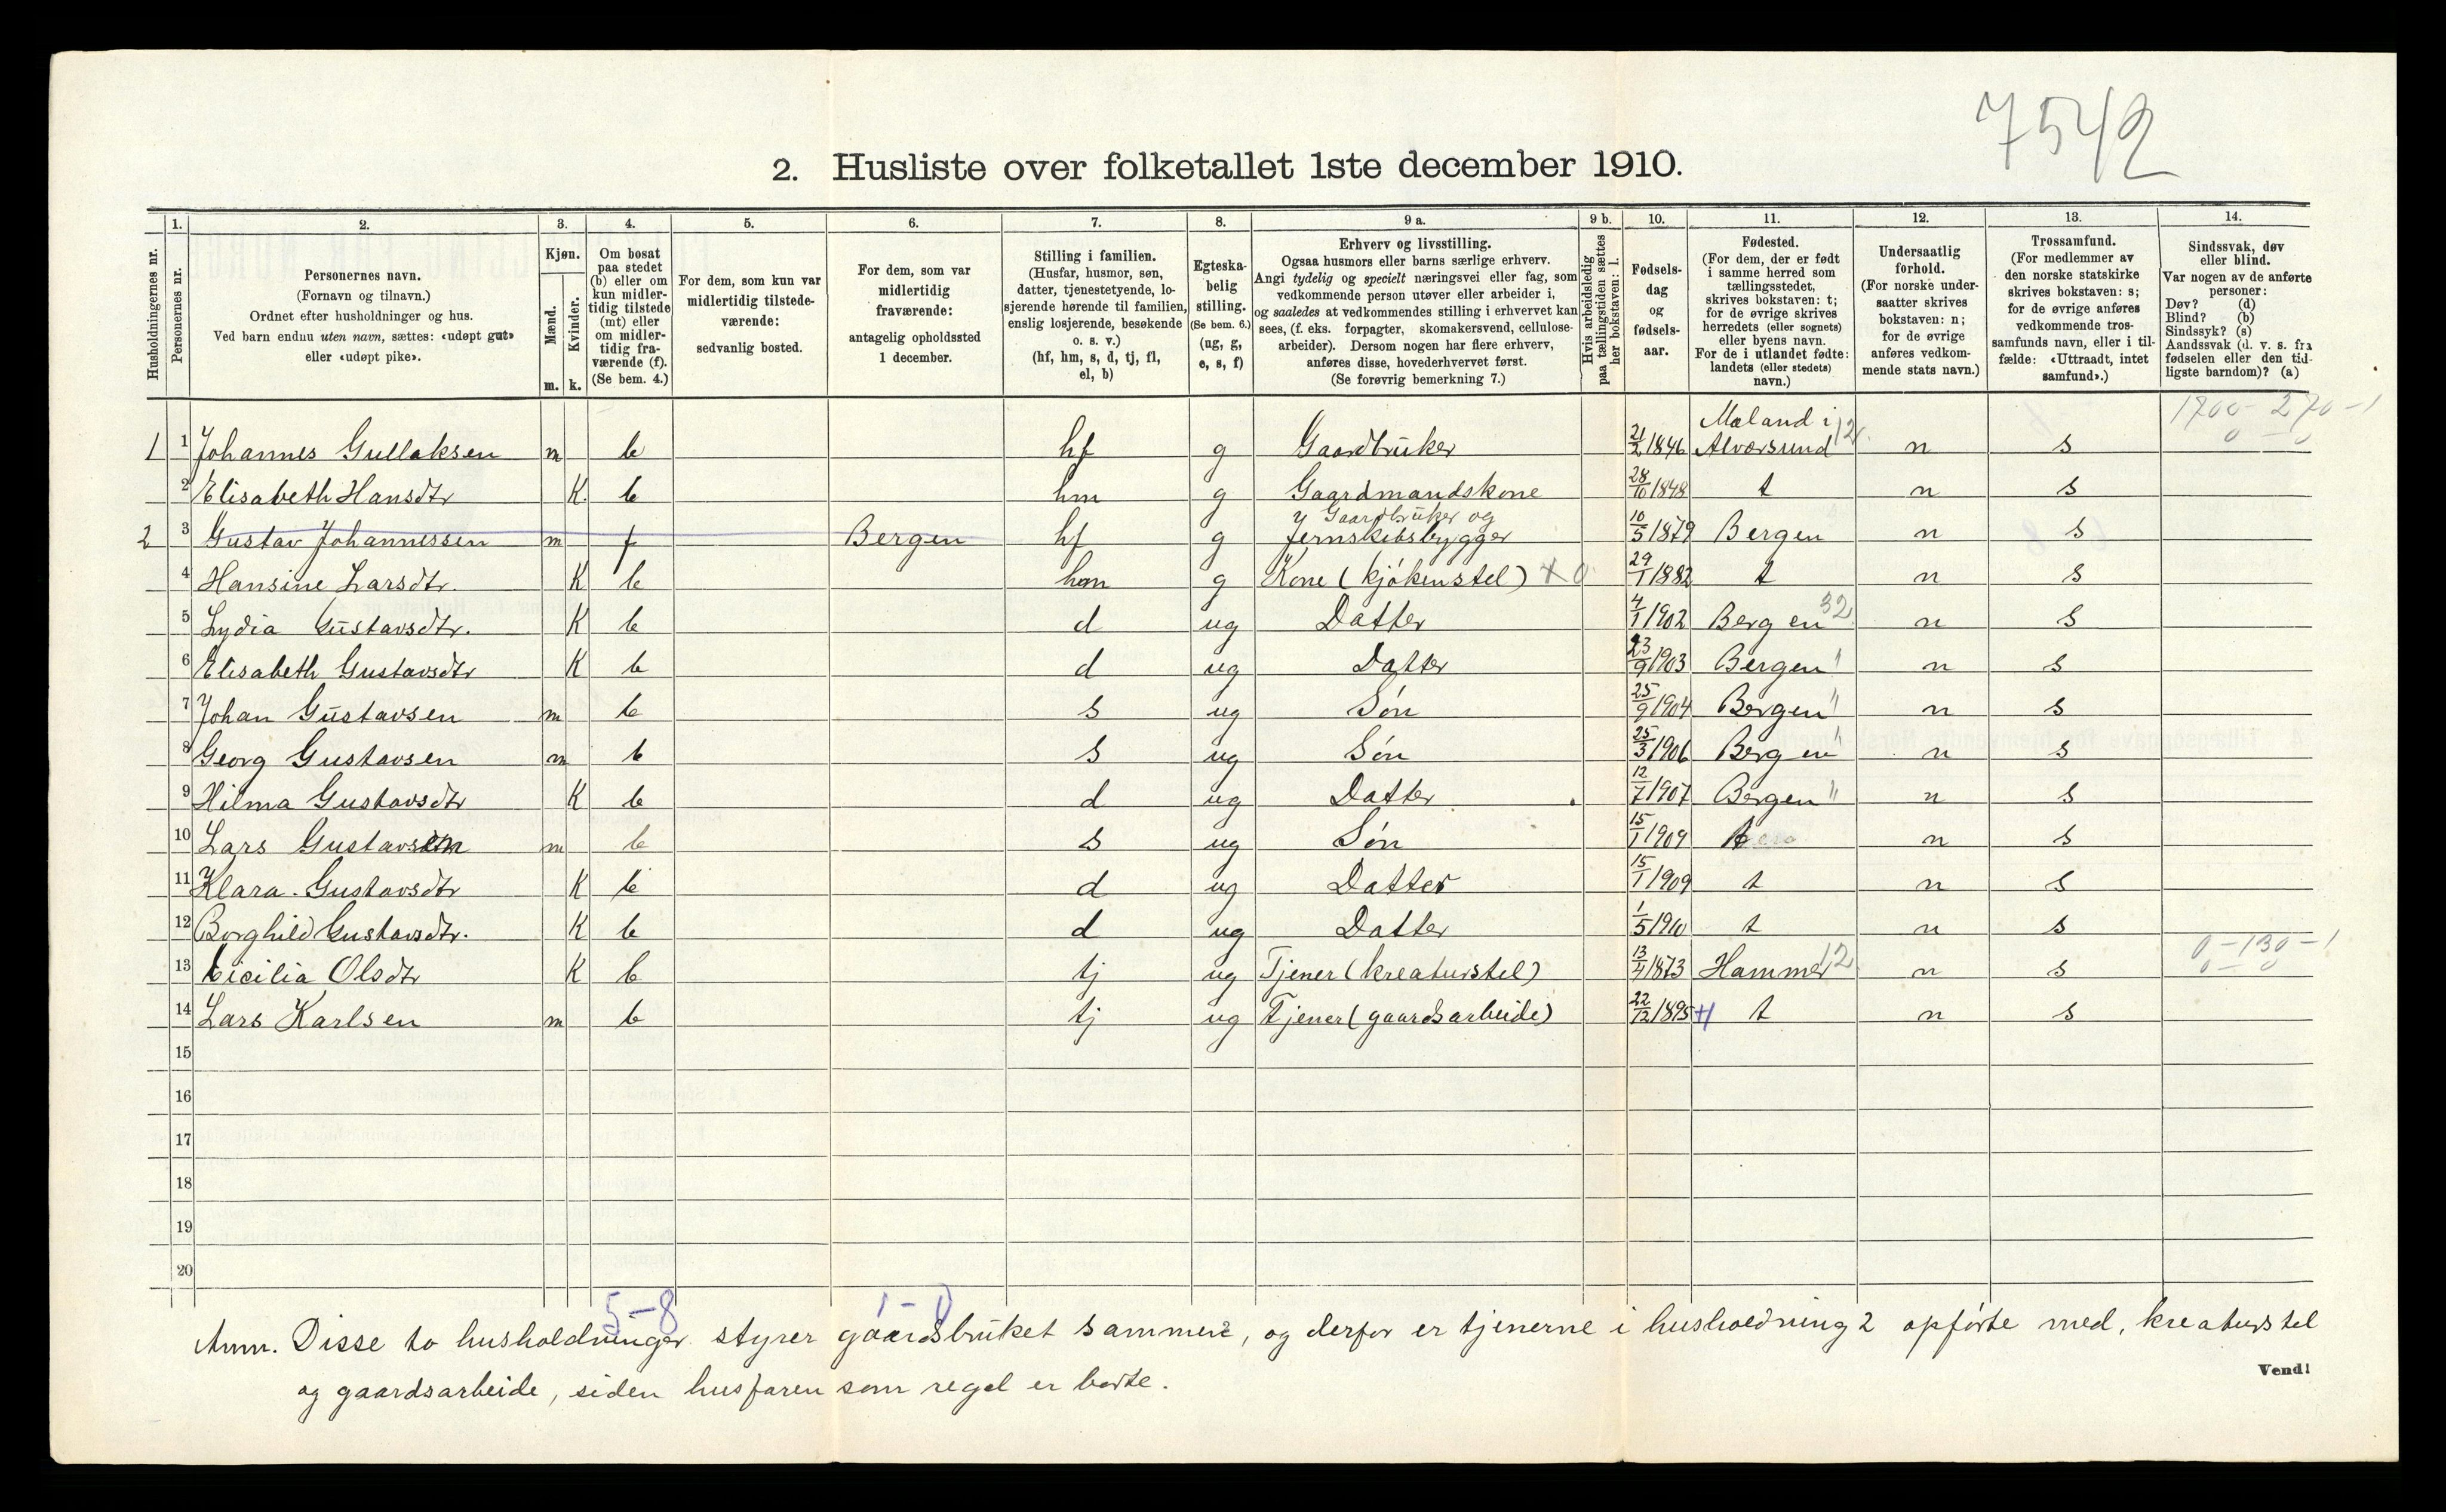 7542
2. Husliste over folketallet 1ste december 1910.
Husholdningernes nr.
1.
Personernes nr.
2.
Personernes navn.
(Fornavn og tilnavn.)
Ordnet efter husholdninger og hus.
Ved barn endnu uten navn, sættes: «udøpt gut»
eller «udøpt pike».
3.
Kjøn.
Mænd.
Kvinder.
m. k.
4.
Om bosat
paa stedet
(b) eller om
kun midler-
tidig tilstede
(mt) eller
om midler-
tidig fra-
værende (f).
(Se bem. 4.)
5.
For dem, som kun var
midlertidig tilstede-
værende:
sedvanlig bosted.
6.
For dem, som var
midlertidig
fraværende:
antagelig opholdssted
1 december.
7.
Stilling i familien.
(Husfar, husmor, søn,
datter, tjenestetyende, lo-
sjerende hørende til familien,
enslig losjerende, besøkende
o. s. v.)
(hf, hm, s, d, tj, fl,
el, b)
8.
Egteska-
belig
stilling.
(Se bem. 6.)
(ug, g,
e, s, f)
9 a.
Erhverv og livsstilling.
Ogsaa husmors eller barns særlige erhverv.
Angi tydelig og specielt næringsvei eller fag, som
vedkommende person utøver eller arbeider i,
og saaledes at vedkommendes stilling i erhvervet kan
sees, (f. eks. forpagter, skomakersvend, cellulose-
arbeider). Dersom nogen har flere erhverv,
anføres disse, hovederhvervet først.
(Se forøvrig bemerkning 7.)
9 b.
Hvis arbeidsledig
paa tællingstiden sættes
her bokstaven: l.
10.
Fødsels-
dag
og
fødsels-
aar.
11.
Fødested.
(For dem, der er født
i samme herred som
tællingsstedet,
skrives bokstaven: t;
for de øvrige skrives
herredets (eller sognets)
eller byens navn.
For de i utlandet fødte:
landets (eller stedets)
navn.)
12.
Undersaatlig
forhold.
(For norske under-
saatter skrives
bokstaven: n;
for de øvrige
anføres vedkom-
mende stats navn.)
13.
Trossamfund.
(For medlemmer av
den norske statskirke
skrives bokstaven: s;
for de øvrige anføres
vedkommende tros-
samfunds navn, eller i til-
fælde: «Uttraadt, intet
samfund».)
14.
Sindssvak, døv
eller blind.
Var nogen av de anførte
personer:
Døv? (d)
Blind? (b)
Sindssyk? (s)
Aandssvak (d. v. s. fra
fødselen eller den tid-
ligste barndom)? (a)
Mæland i 1700-270-1
1 1 Johannes Gullaksen m b hf g Gaardbruker 21/2 1846 Alversund 12 n s 0-0
2 Elisabeth Hansdtr K. b hm g Gaardmandskone 28/10 1848 t n s
y Gaardbruker og
2 3 Gustav Johannessen m f Bergen hf g Jernskibsbygger 10/5 1879 Bergen n s
4 Hansine Larsdtr. K b hm g Kone (kjøkenstel) x 0 29/1 1882 t n s
5 Lydia Gustavsdtr. K b d ug Datter 4/1 1902 Bergen 32 n s
6 Elisabeth Gustavsdtr K b d ug Datter 23/9 1903 Bergen " n s
7 Johan Gustavsen m b s ug Søn 25/9 1904 Bergen " n s
8 Georg Gustavsen m b s ug Søn 25/3 1906 Bergen " n s
9 Hilma Gustavsdtr K b d ug Datter 12/7 1907 Bergen " n s
10 Lars Gustavsen m b s ug Søn 15/1 1909 t n s
11 Klara Gustavsdtr K b d ug Datter 15/1 1909 t n s
12 Borghild Gustavsdtr. K b d ug Datter 1/5 1910 t n s
0-130-1
13 Cicilia Olsdtr K b tj ug Tjener (kreaturstel) 13/4 1873 Hammer 12 n s 0-0
14 Lars Karlsen m b tj ug Tjener (gaardsarbeide) 22/12 1895 + t n s
15
16
17
18
19
20
5-8 1-0
Anm. Disse to husholdninger styrer gaardsbruket sammen, og derfor er tjenerne i husholdning 2 opførte med, kreaturstel
Vend!
og gaardsarbeide, siden husfaren som regel er borte.